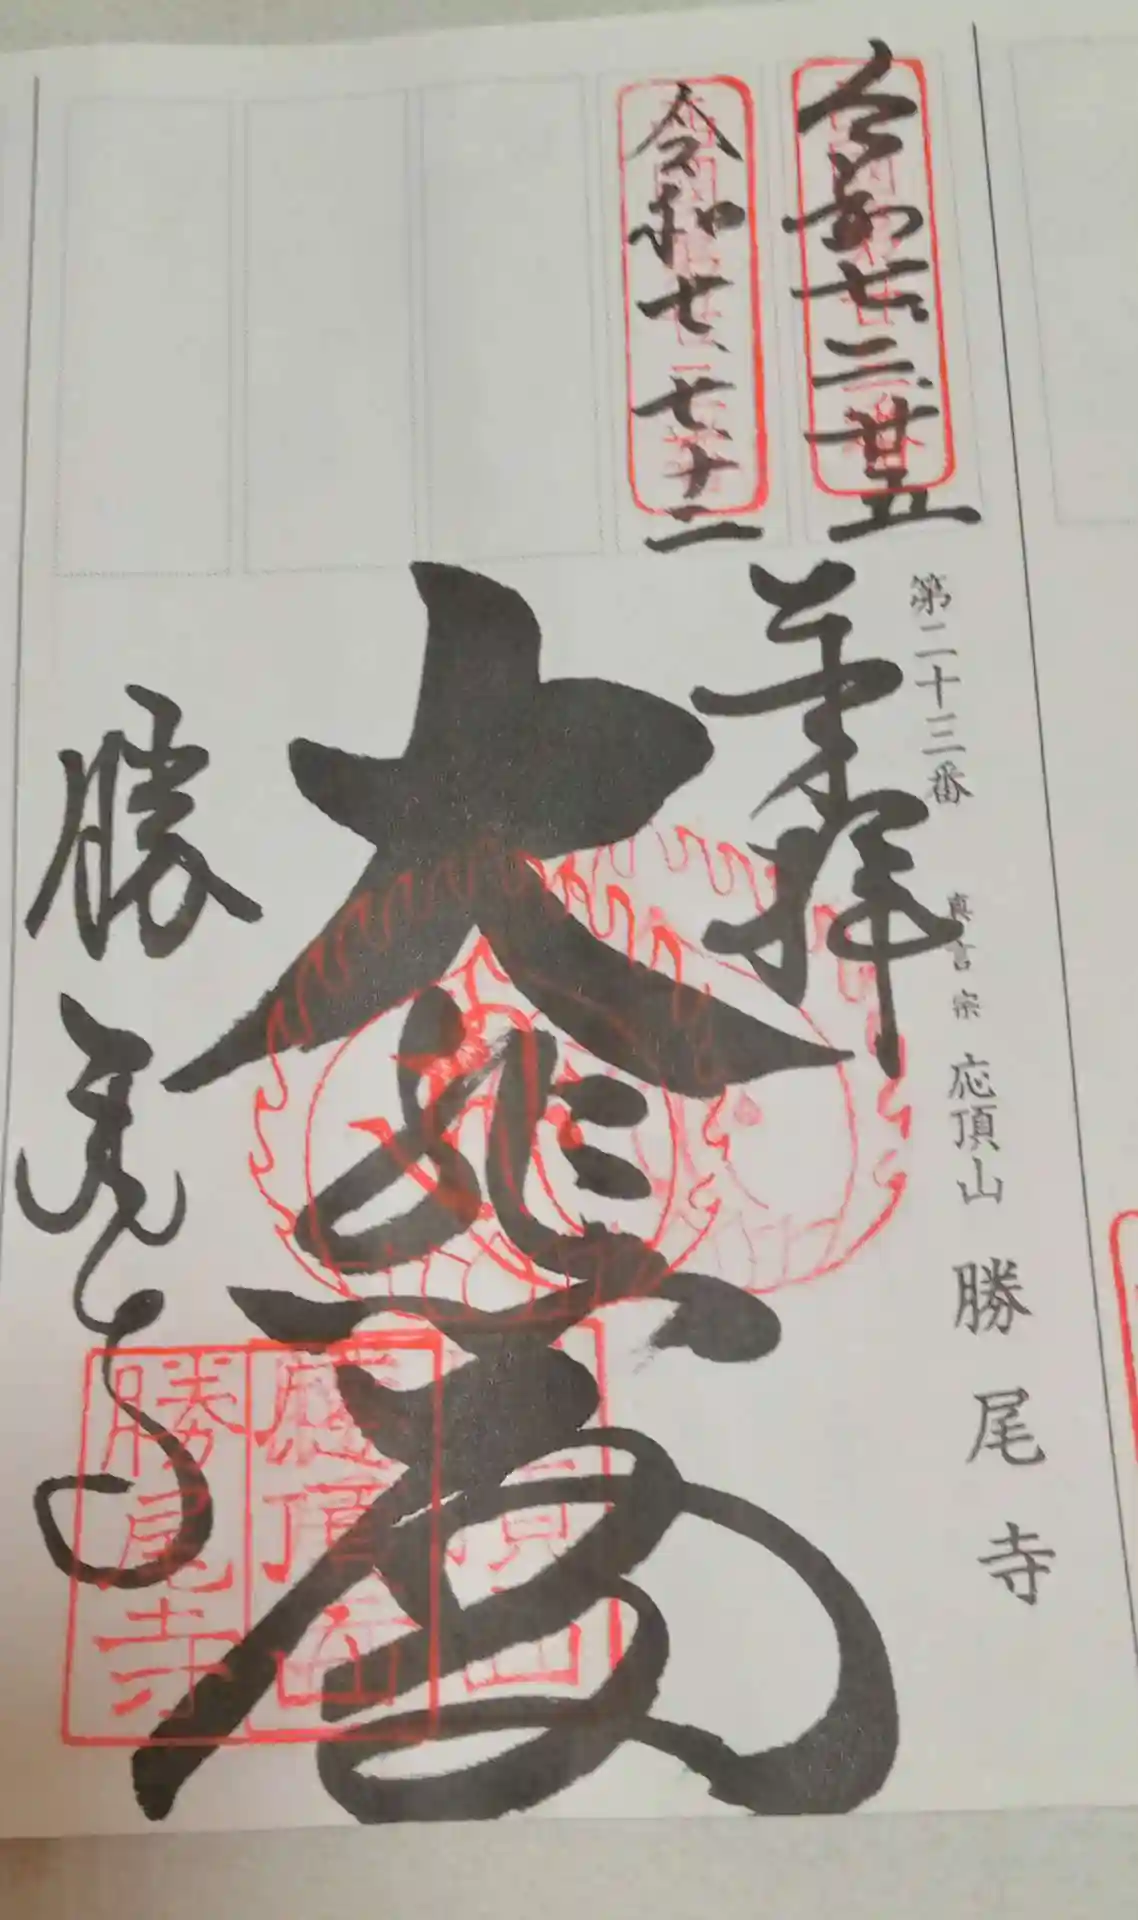 令和七.三.廿五
令和七.七.十二
第二十三番 真言宗 応頂山 勝尾寺
奉拝
大悲殿
勝尾寺
應頂山
勝尾寺
頂山